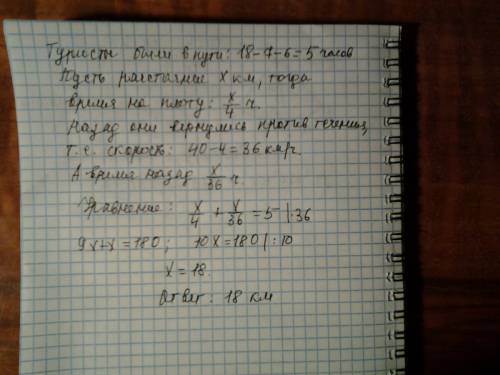 Туристы были в пути: 18-7-6=5 часов
Пусть расстояние x км, тогда
время на плоту: x/4 ч.
Назад они вернулись против течения,
т.е. скорость: 40-4=36 км/ч.
А время назад x/36 ч
Уравнение: x/4 + x/36 = 5 |·36
9x+x=180; 10x=180 |:10
x=18.
Ответ: 18 км